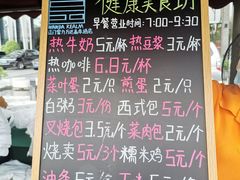 健康美食坊
WANDA REALM
早餐营业时间:7:00-9:30
热牛奶5元/杯 热豆浆3元/杯
热咖啡6.8元/杯
茶叶蛋2元/只 煎蛋2元/只
白粥3元/份 西式包5元/个
叉烧包3.5元/个 菜肉包2元/个
烧卖5元/3个 糯米鸡5元/个
油条